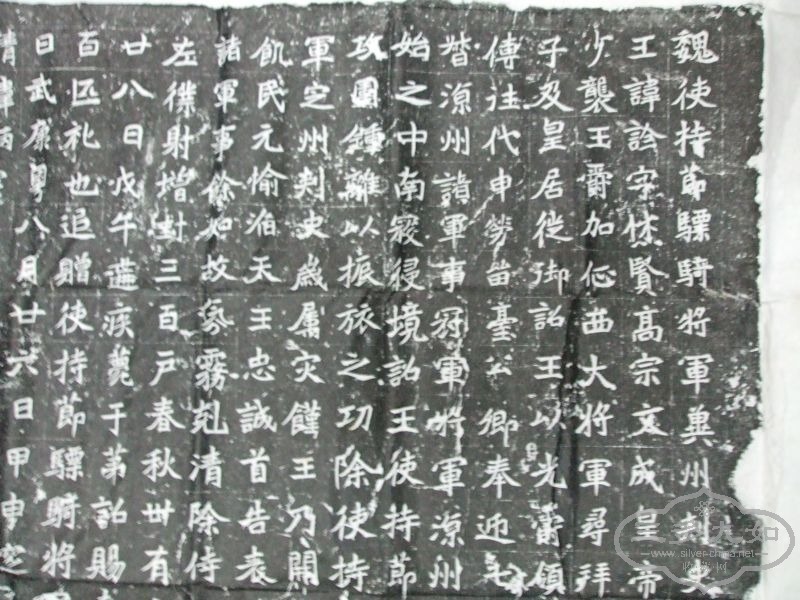 魏使持節驃騎將軍冀州刾史
王諱詮字休賢高宗文成皇帝
少襲王爵加征西大將軍尋拜
子及皇居徙御詔王以光爵領
傅往代申勞留臺公卿奉迎七
督涼州諸軍事冠軍將軍涼州
始之中南寇侵境詔王使持節
攻圍鍾離以振旅之功除使持
軍定州刾史歲属灾饉王乃開
飢民元愉滔天王忠誠首告表
諸軍事餘如故氛霧剋清除侍
左僕射增封三百戶春秋卌有
廿八日戊午遘疾薨于第詔賜
百匹礼也追贈使持節驃騎將
日武康粵八月廿六日甲申窆
www.silver-china.net